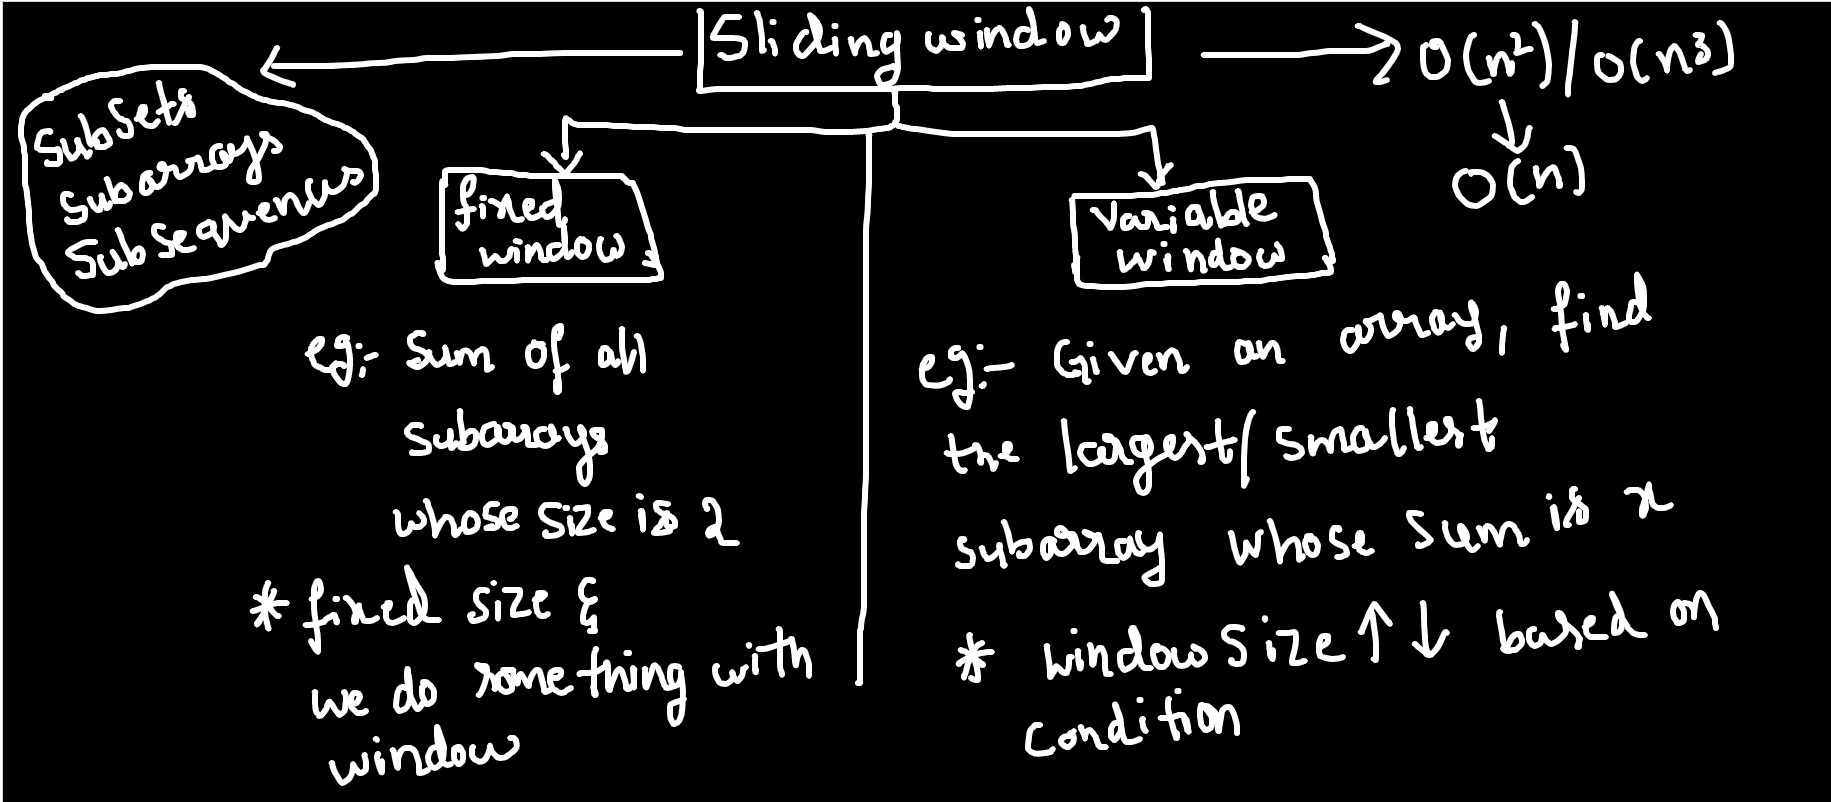 Sliding window
O(n²)/O(n³)
O(n)
SubSets
Subarrays
SubSequences
fixed
window
variable
window
eg:- Sum of all
Subarrays
whose size is 2
* fixed size &
we do something with
window
eg:- Given an array, find
the largest/smallest
subarray whose sum is x
* window size ↑↓ based on
condition